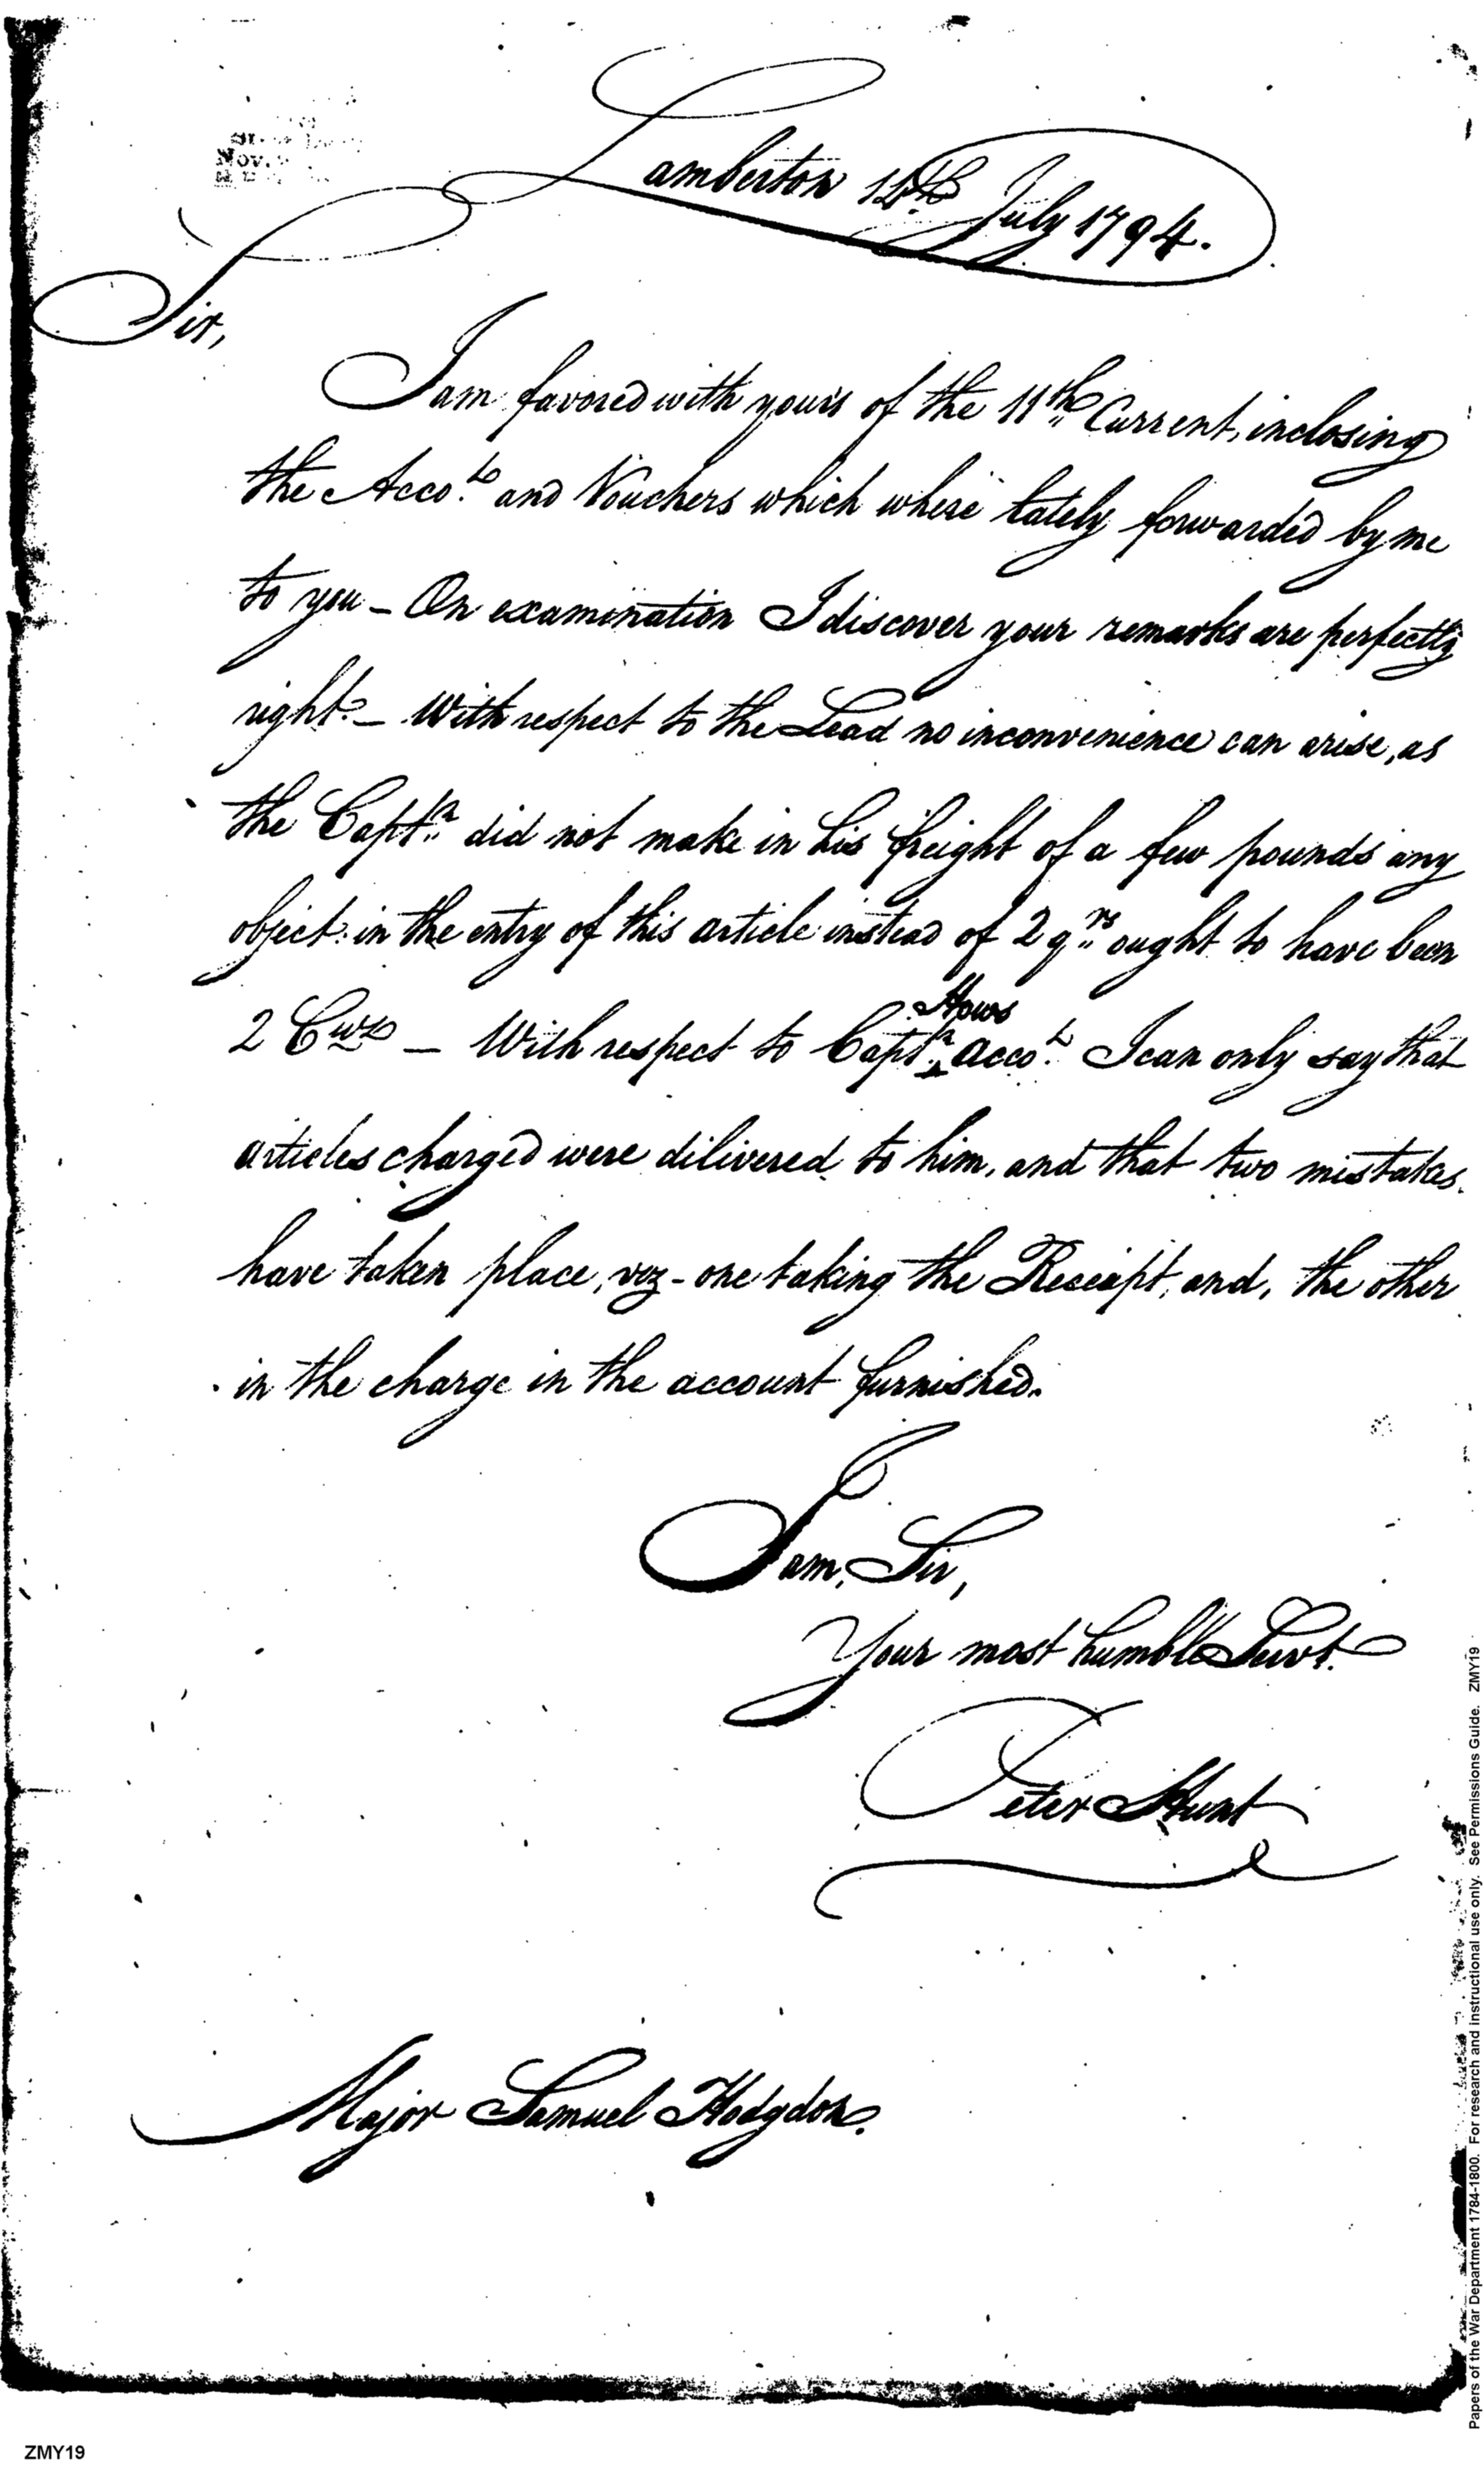 Lamberton 14th July 1794.
Sir,
I am favored with yours of the 11th Current, inclosing
the Accots and Vouchers which where lately forwarded by me
to you – On examination I discover your remarks are perfectly
right – With respect to the Lead no inconvenience can arise, as
the Captn did not make in his freight of a few pounds any
object: in the entry of this article instead of 2 qrs ought to have been
2 Cwt – With respect to Captn Hows accot I can only say that
articles charged were dilivered to him, and that two mistakes
have taken place, viz – one taking the Receipt, and, the other
in the charge in the account furnished.
I am, Sir,
Your most humble Servt.
Peter Hunt
Major Samuel Hodgdon.
Papers of the War Department 1784-1800. For research and instructional use only. See Permissions Guide. ZMY19
ZMY19